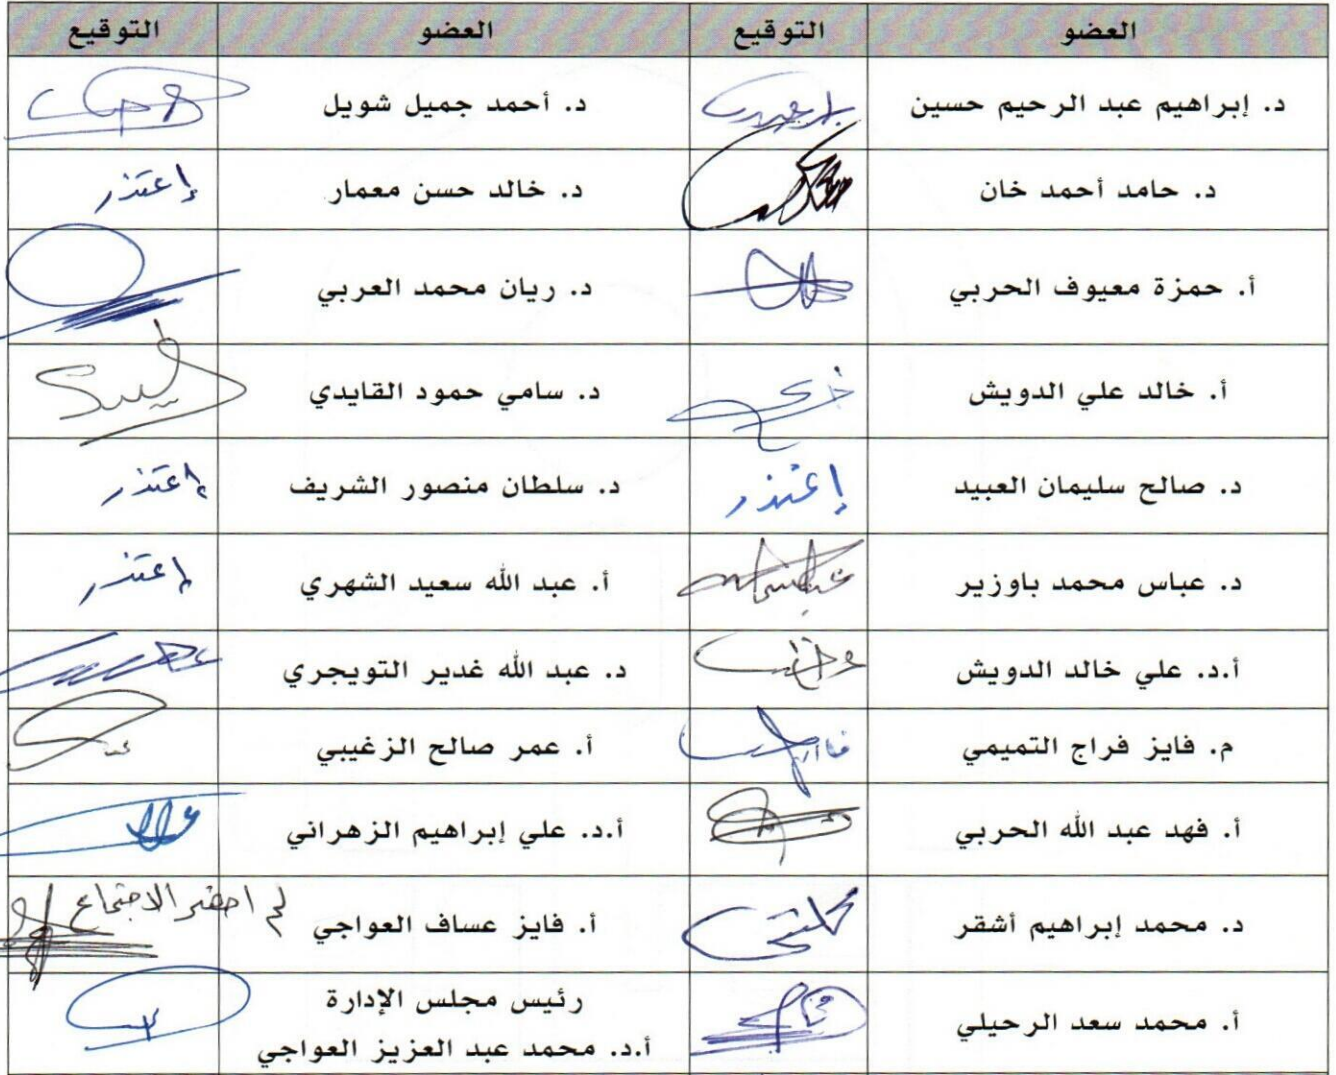 العضو التوقيع العضو التوقيع
د. إبراهيم عبد الرحيم حسين د. أحمد جميل شويل
د. حامد أحمد خان د. خالد حسن معمار إعتذر
أ. حمزة معيوف الحربي د. ريان محمد العربي
أ. خالد علي الدويش د. سامي حمود القايدي
د. صالح سليمان العبيد إعتذر د. سلطان منصور الشريف إعتذر
د. عباس محمد باوزير أ. عبد الله سعيد الشهري إعتذر
أ.د. علي خالد الدويش د. عبد الله غدير التويجري
م. فايز فراج التميمي أ. عمر صالح الزغيبي
أ. فهد عبد الله الحربي أ.د. علي إبراهيم الزهراني
د. محمد إبراهيم أشقر أ. فايز عساف العواجي لم احضر الاجتماع
أ. محمد سعد الرحيلي رئيس مجلس الإدارة
أ.د. محمد عبد العزيز العواجي